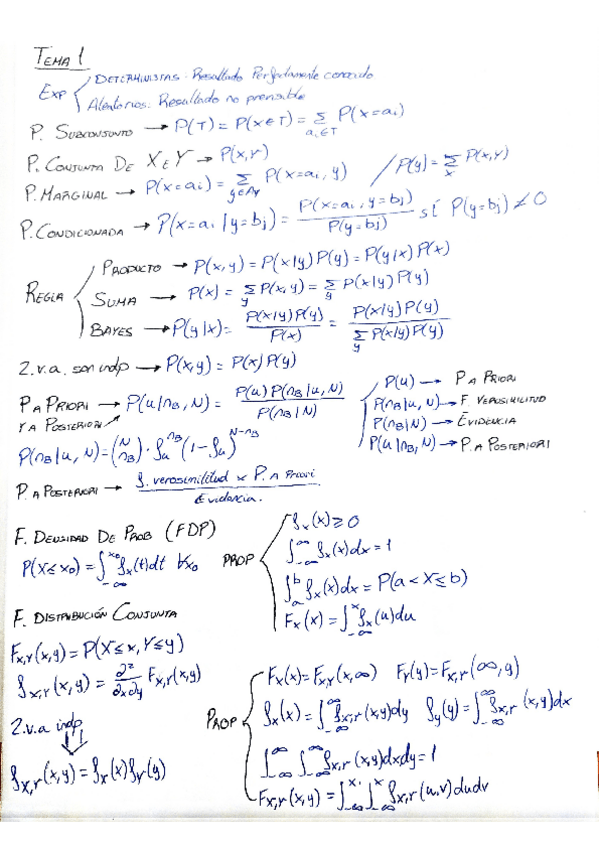 TEMA 1
EXP { DETERMINISTAS: Resultado Perfectamente conocido
Aleatorios: Resultado no previsible
P. SUBCONJUNTO → P(T) = P(x∈T) = Σ_{a_i∈T} P(x=a_i)
P. CONJUNTA DE X e Y → P(x,y)
P. MARGINAL → P(x=a_i) = Σ_{y∈A_y} P(x=a_i, y) / P(y) = Σ_x P(x,y)
P. CONDICIONADA → P(x=a_i | y=b_j) = P(x=a_i, y=b_j) / P(y=b_j) si P(y=b_j) ≠ 0
REGLA { PRODUCTO → P(x,y) = P(x|y) P(y) = P(y|x) P(x)
SUMA → P(x) = Σ_y P(x,y) = Σ_y P(x|y) P(y)
BAYES → P(y|x) = P(x|y)P(y) / P(x) = P(x|y) P(y) / Σ_y P(x|y) P(y)
2.v.a. son indp → P(x,y) = P(x) P(y)
P A PRIORI → P(u|n_B, N) = P(u) P(n_B|u, N) / P(n_B|N)
Y A POSTERIORI
{ P(u) → P A PRIORI
P(n_B|u, N) → F. VEROSIMILITUD
P(n_B|N) → EVIDENCIA
P(u|n_B, N) → P. A POSTERIORI
P(n_B|u, N) = (N n_B) · f_u^{n_B} (1-f_u)^{N-n_B}
P. A POSTERIORI → f. verosimilitud × P. A Priori / Evidencia.
F. DENSIDAD DE PROB (FDP)
P(X≤x_0) = ∫_{-∞}^{x_0} f_x(t)dt ∀x_0
PROP { f_x(x) ≥ 0
∫_{-∞}^{∞} f_x(x)dx = 1
∫_a^b f_x(x)dx = P(a < X ≤ b)
F_x(x) = ∫_{-∞}^x f_x(u)du
F. DISTRIBUCIÓN CONJUNTA
F_{x,y}(x,y) = P(X≤x, Y≤y)
f_{x,y}(x,y) = ∂²/∂x∂y F_{x,y}(x,y)
2.v.a indp
⇓
f_{x,y}(x,y) = f_x(x) f_y(y)
PROP { F_x(x) = F_{x,y}(x,∞) F_y(y) = F_{x,y}(∞,y)
f_x(x) = ∫_{-∞}^{∞} f_{x,y}(x,y)dy f_y(y) = ∫_{-∞}^{∞} f_{x,y}(x,y)dx
∫_{-∞}^{∞} ∫_{-∞}^{∞} f_{x,y}(x,y)dxdy = 1
F_{x,y}(x,y) = ∫_{-∞}^{x} ∫_{-∞}^{x} f_{x,y}(u,v)dudv